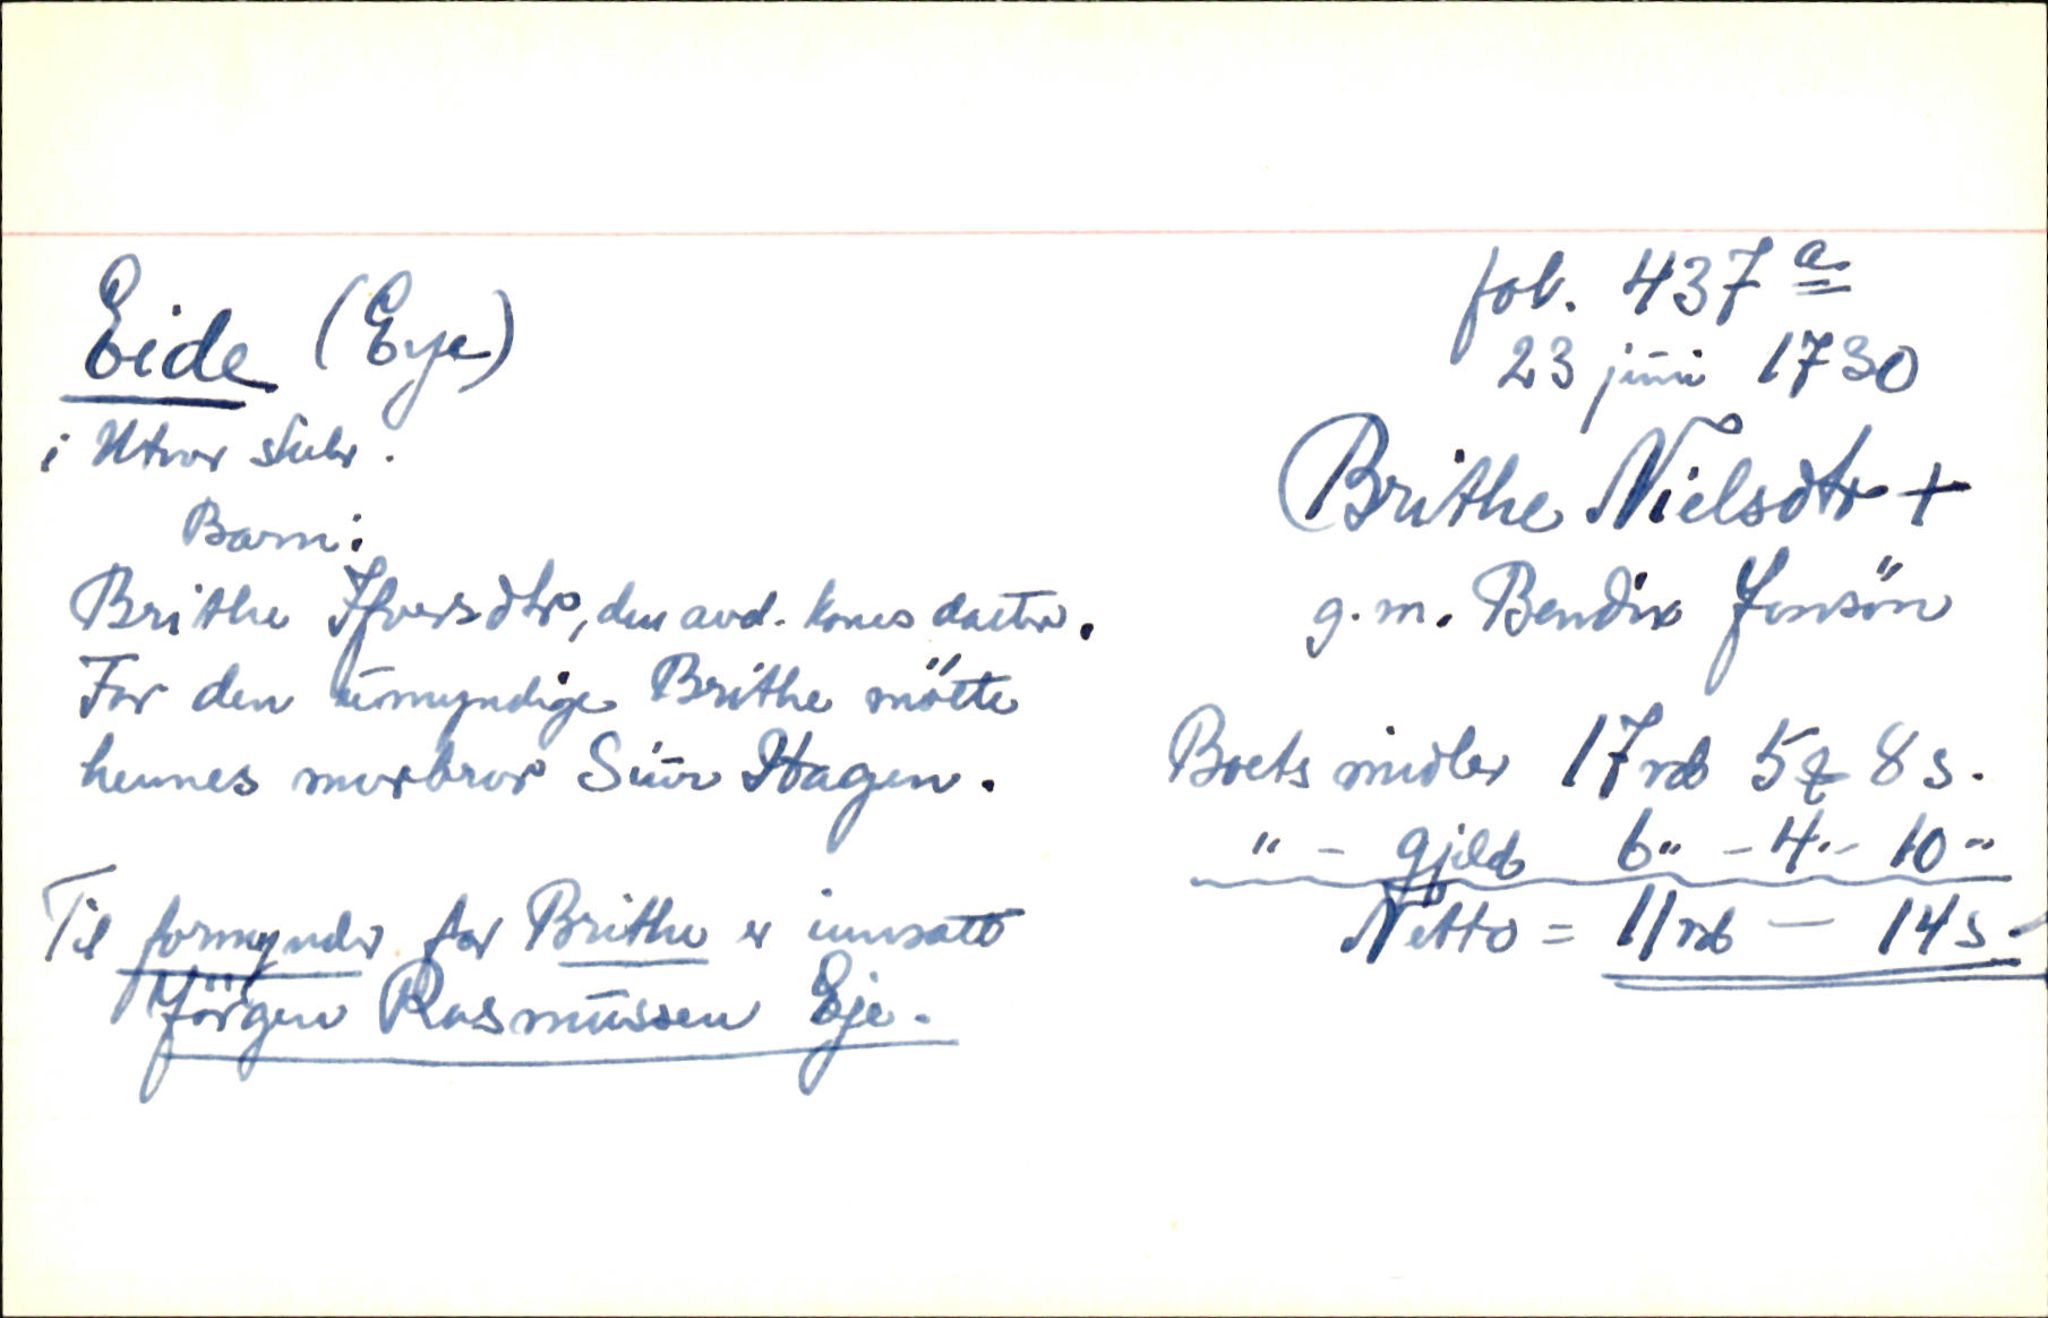 Eide (Eye)
i Utvær skibr.
Barn:
Brithe Ifversdtr, den avd. kones datter.
For den umyndige Brithe mötte
hennes morbror Siur Hagen.
Til formynder for Brithe er innsatt
Jörgen Rasmussen Eje.
fol. 437 a.
23 juni 1730
Brithe Nielsdtr +
g. m. Bendix Jonsön
Boets midler 17 rd 5 ₰ 8 s.
" - gjeld 6 " - 4 " - 10 "
Netto = 11 rd — 14 s.